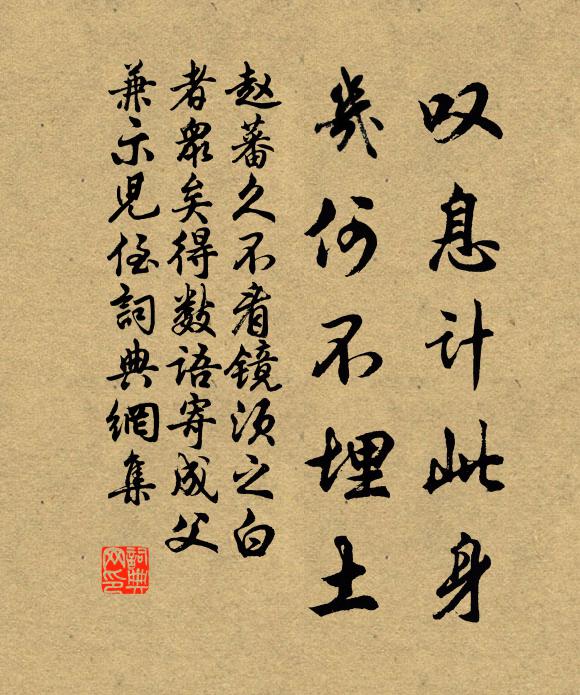 叹息计此身
幾何不埋土
赵蕃久不看镜须之白
者眾矣得数语寄成父
兼示児侄詞典網集
詞典
网印